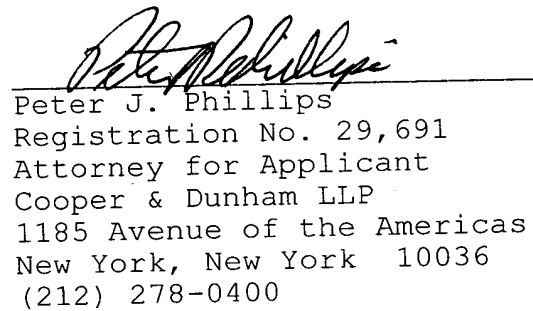 Peter J. Phillips
Peter J. Phillips
Registration No. 29,691
Attorney for Applicant
Cooper & Dunham LLP
1185 Avenue of the Americas
New York, New York  10036
(212) 278-0400